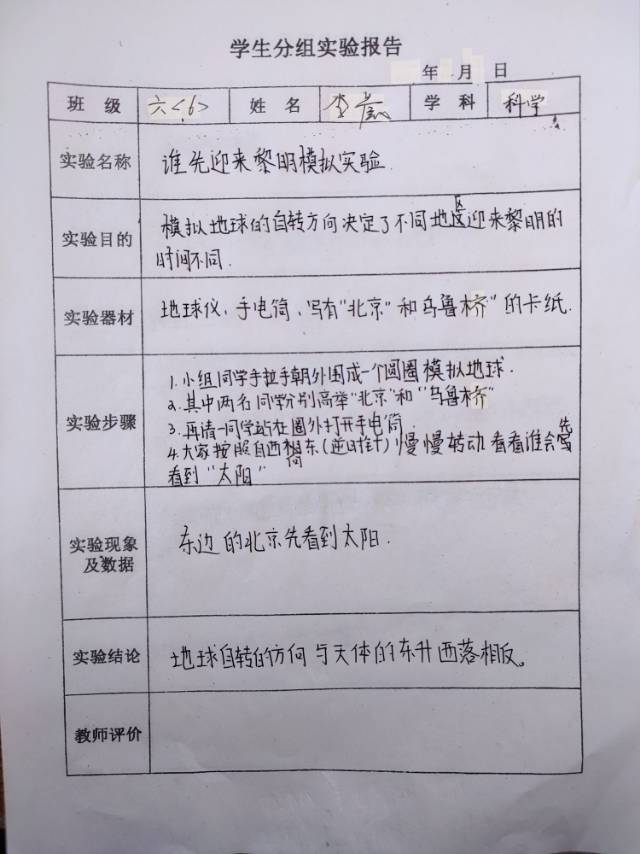 学生分组实验报告
年 月 日
班级 六<6> 姓名 李 学科 科学
实验名称 谁先迎来黎明模拟实验.
实验目的 模拟地球的自转方向决定了不同地区迎来黎明的
时间不同.
实验器材 地球仪、手电筒、写有"北京"和乌鲁木齐"的卡纸.
实验步骤 1.小组同学手拉手朝外围成一个圆圈模拟地球.
2.其中两名同学分别高举"北京"和"乌鲁木齐"
3.再请一同学站在圈外打开手电筒
4.大家按照自西向东(逆时针)慢慢转动看看谁会先
看到"太阳"
实验现象及数据 东边的北京先看到太阳.
实验结论 地球自转的仿向与天体的东升西落相反。
教师评价